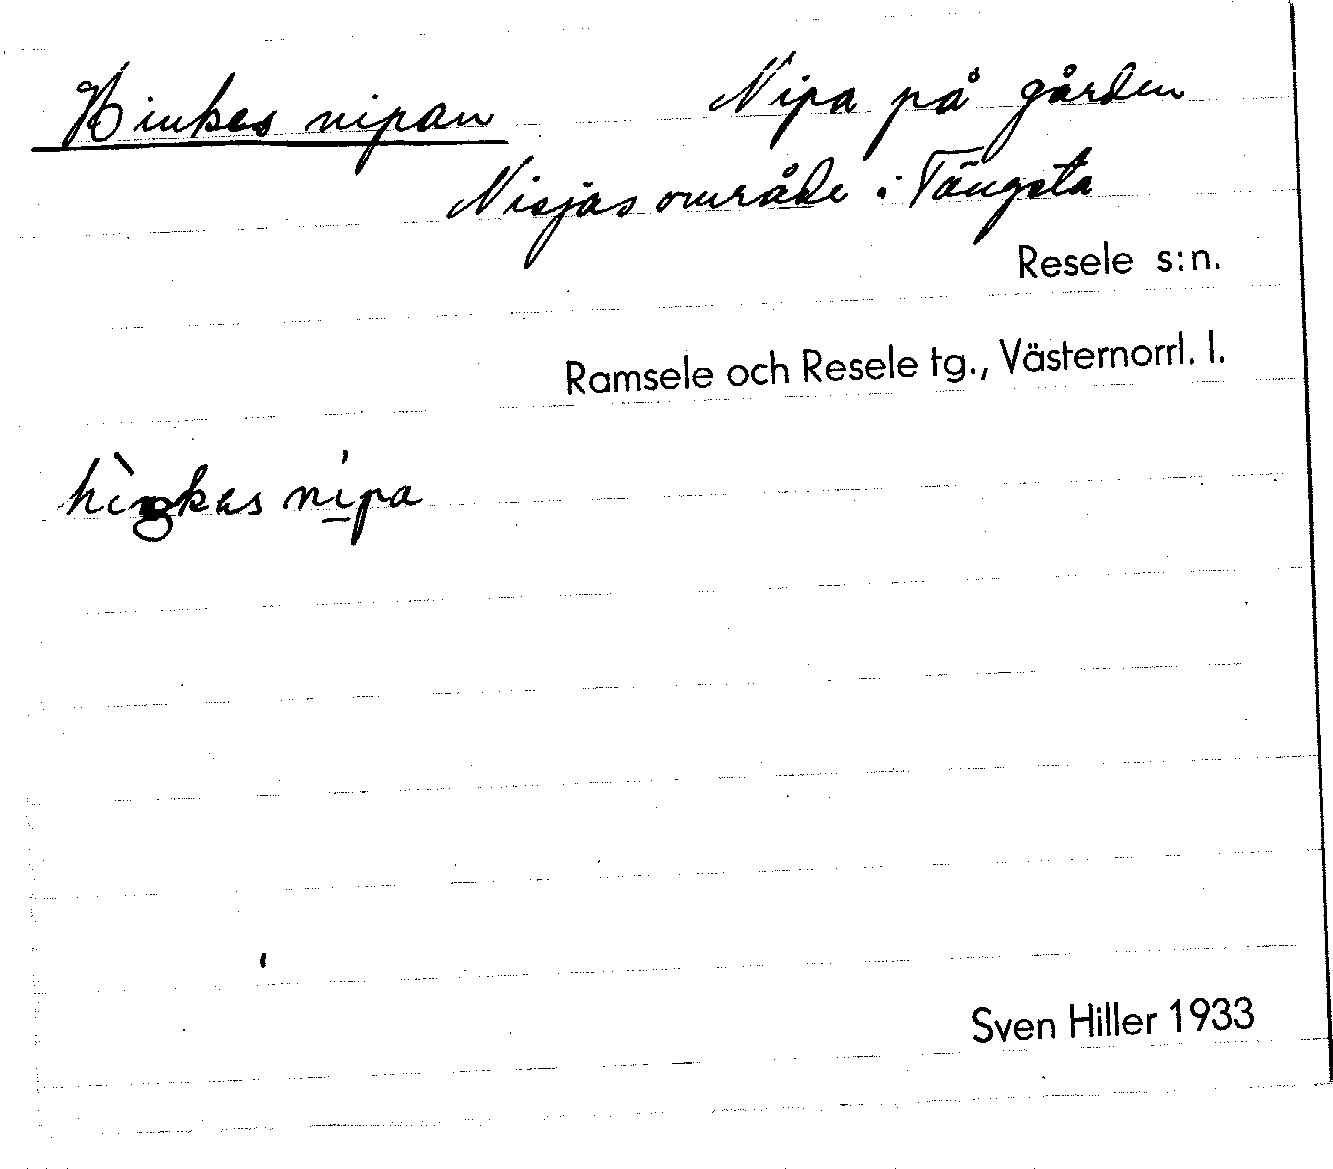 Hinkes nipan Nipa på gården
Nisjas område i Tängsta
Resele s:n.
Ramsele och Resele tg., Västernorrl. l.
hìŋkes nipa
Sven Hiller 1933